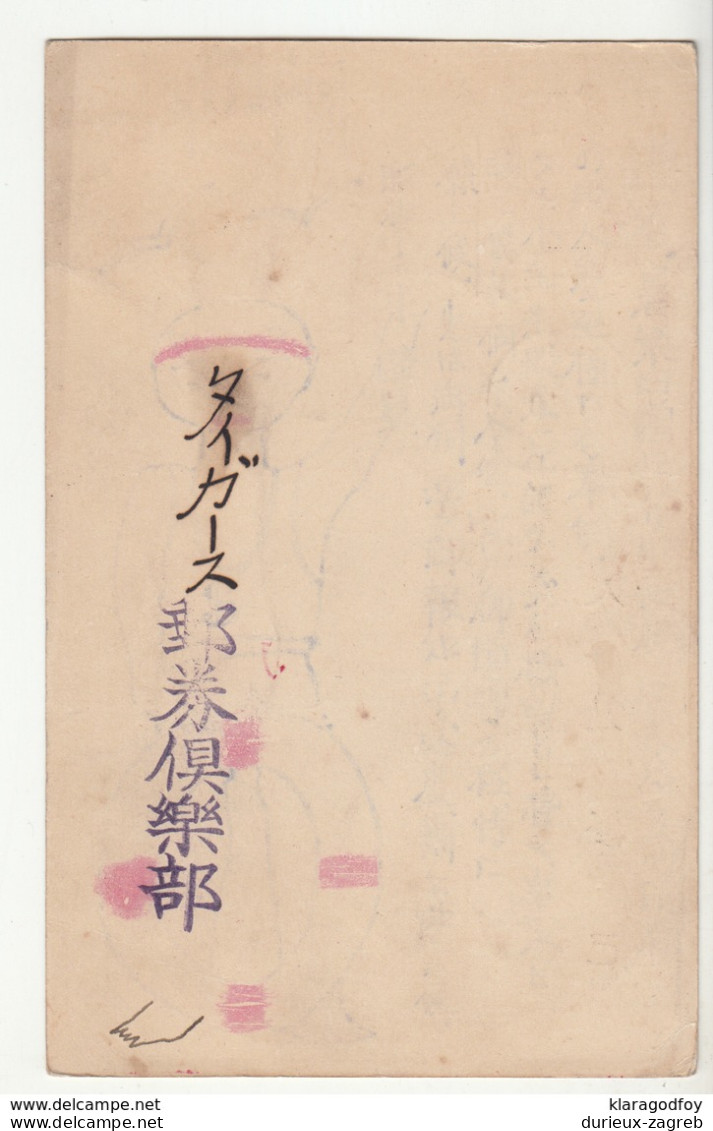 タイガース
郵券倶樂部
www.delcampe.net
klaragodfoy
www.delcampe.net
durieux-zagreb